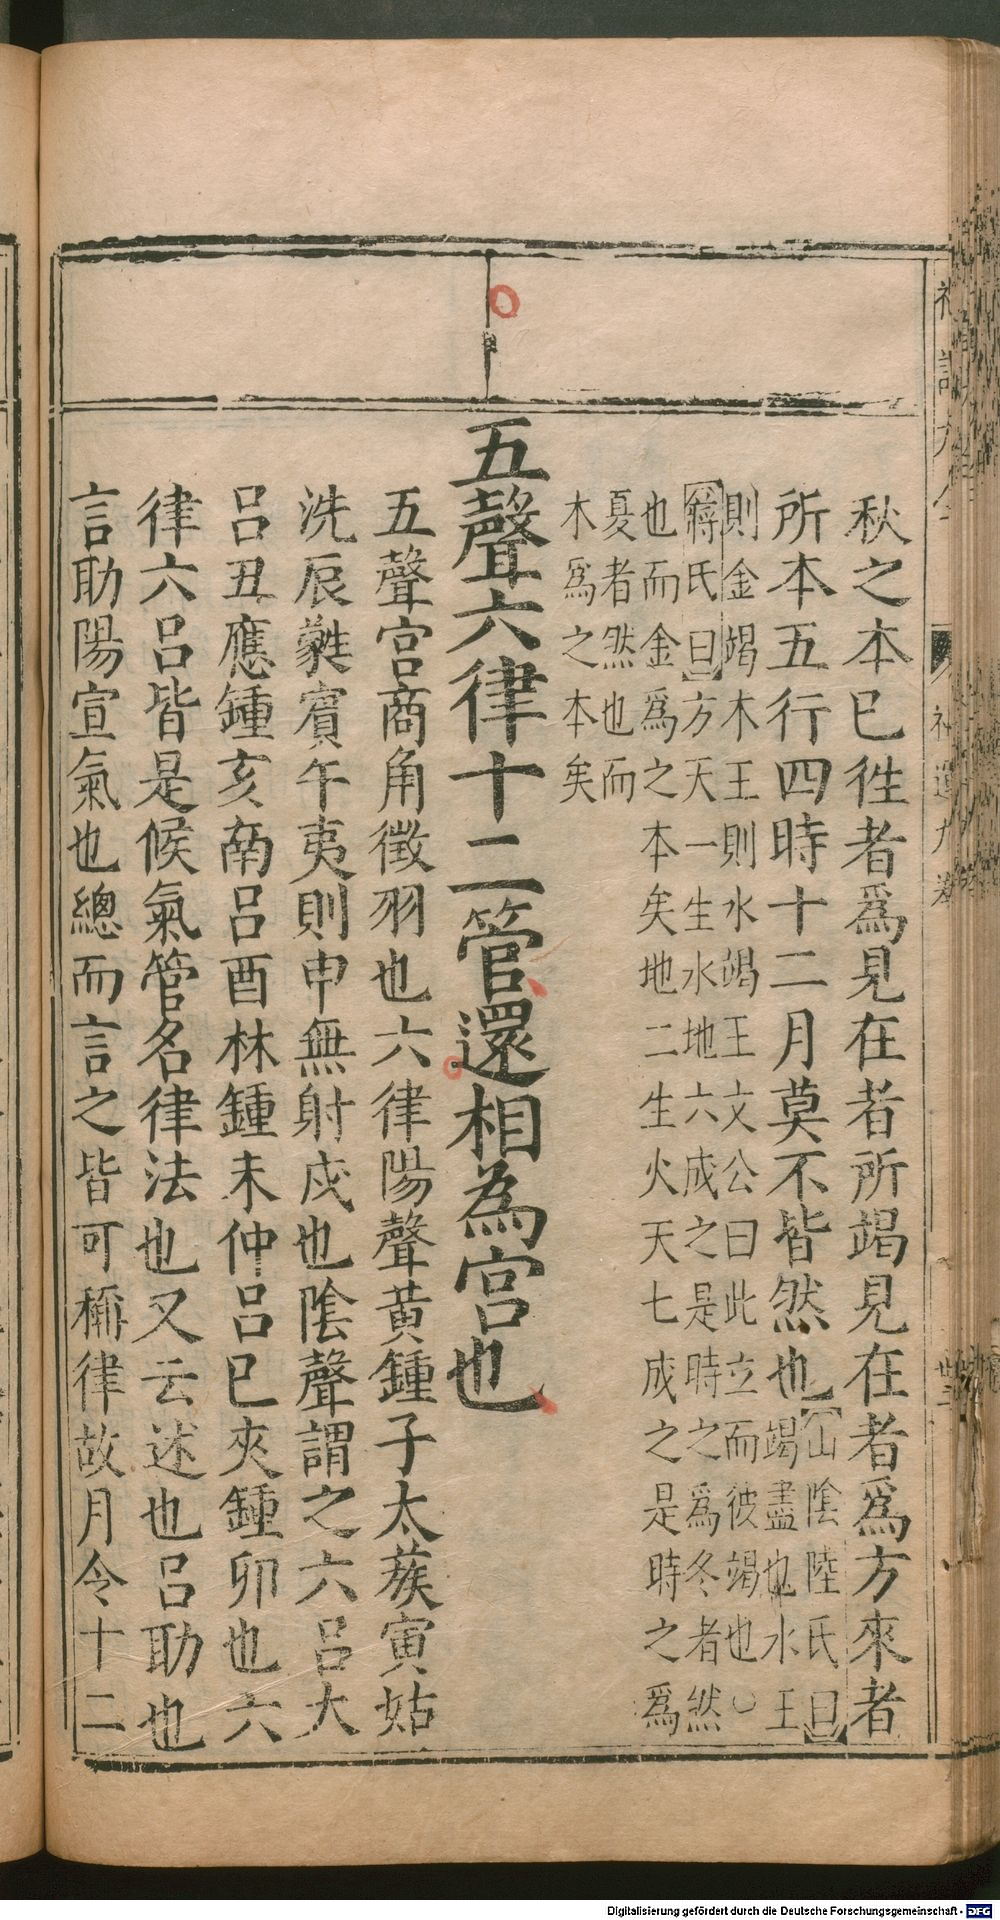 秋之本已徃者爲見在者所竭見在者爲方來者
所本五行四時十二月莫不皆然也
山陰陸氏曰
竭盡也水王
則金竭木王則水竭王文公曰此立而彼竭也○
蔣氏曰方天一生水地六成之是時之爲冬者然
也而金爲之本矣地二生火天七成之是時之爲
夏者然也而
木爲之本矣
五聲六律十二管還相為宮也
五聲宮商角徵羽也六律陽聲黃鍾子太蔟寅姑
洗辰蕤賓午夷則申無射戌也陰聲謂之六呂大
呂丑應鍾亥南呂酉林鍾未仲呂巳夾鍾卯也六
律六呂皆是候氣管名律法也又云述也呂助也
言助陽宣氣也總而言之皆可稱律故月令十二
Digitalisierung gefördert durch die Deutsche Forschungsgemeinschaft - DFG